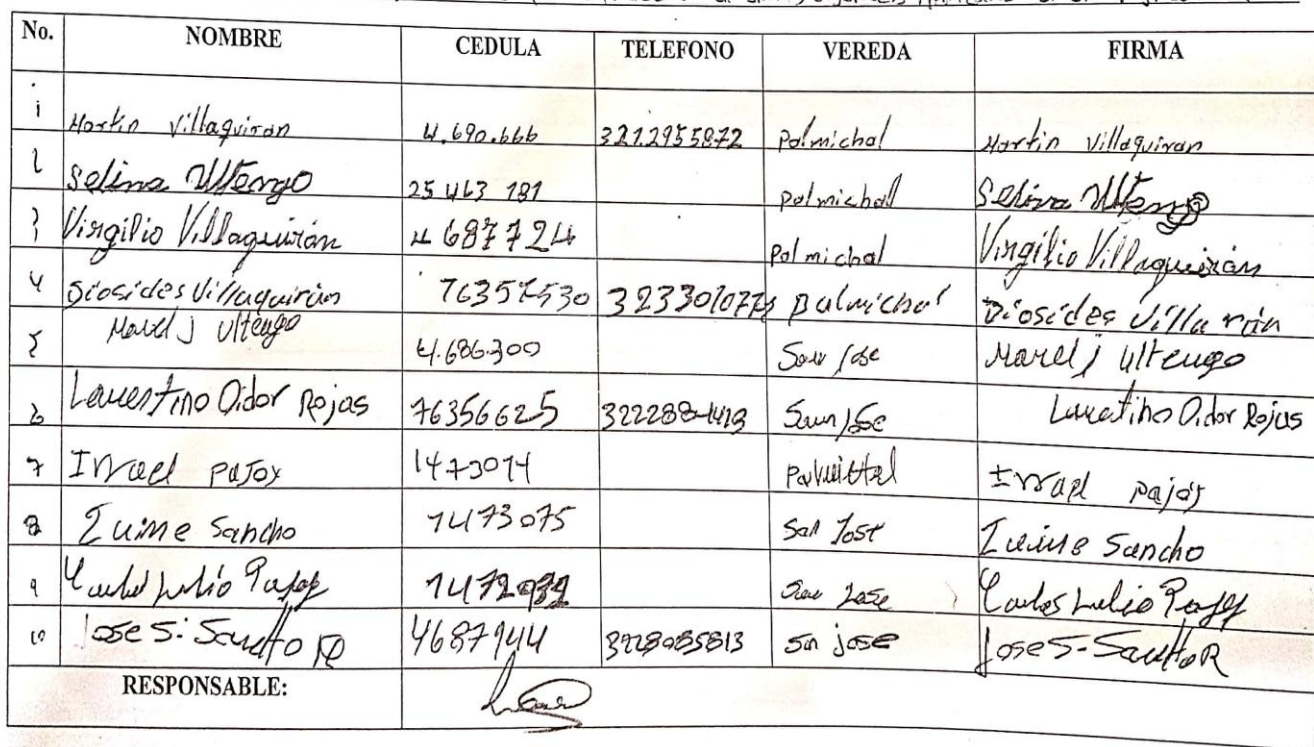 No. NOMBRE CEDULA TELEFONO VEREDA FIRMA
1 Martin Villaquiran 4.690.666 3212955872 Palmichal Martin Villaquiran
2 Selina Ultengo 25463181 palmichal Selina Ultengo
3 Virgilio Villaquirán 4687724 Palmichal Virgilio Villaquirán
4 Diosides Villaquirán 76357530 palmichal Diosides Villa rán
5 Marelj Ultengo 4.686.300 San Jose Marelj Ultengo
6 Laurentino Oidor Rojas 76356625 San Jose Oidor Rojas
7 Israel pajoy 1473074 Israel pajoy
8 Sancho 1473075 San Jose Sancho
9 Carlos Julio San Jose Carlos Julio
10 Jose S. 4687944 3228085813 San jose Jose S.
RESPONSABLE: